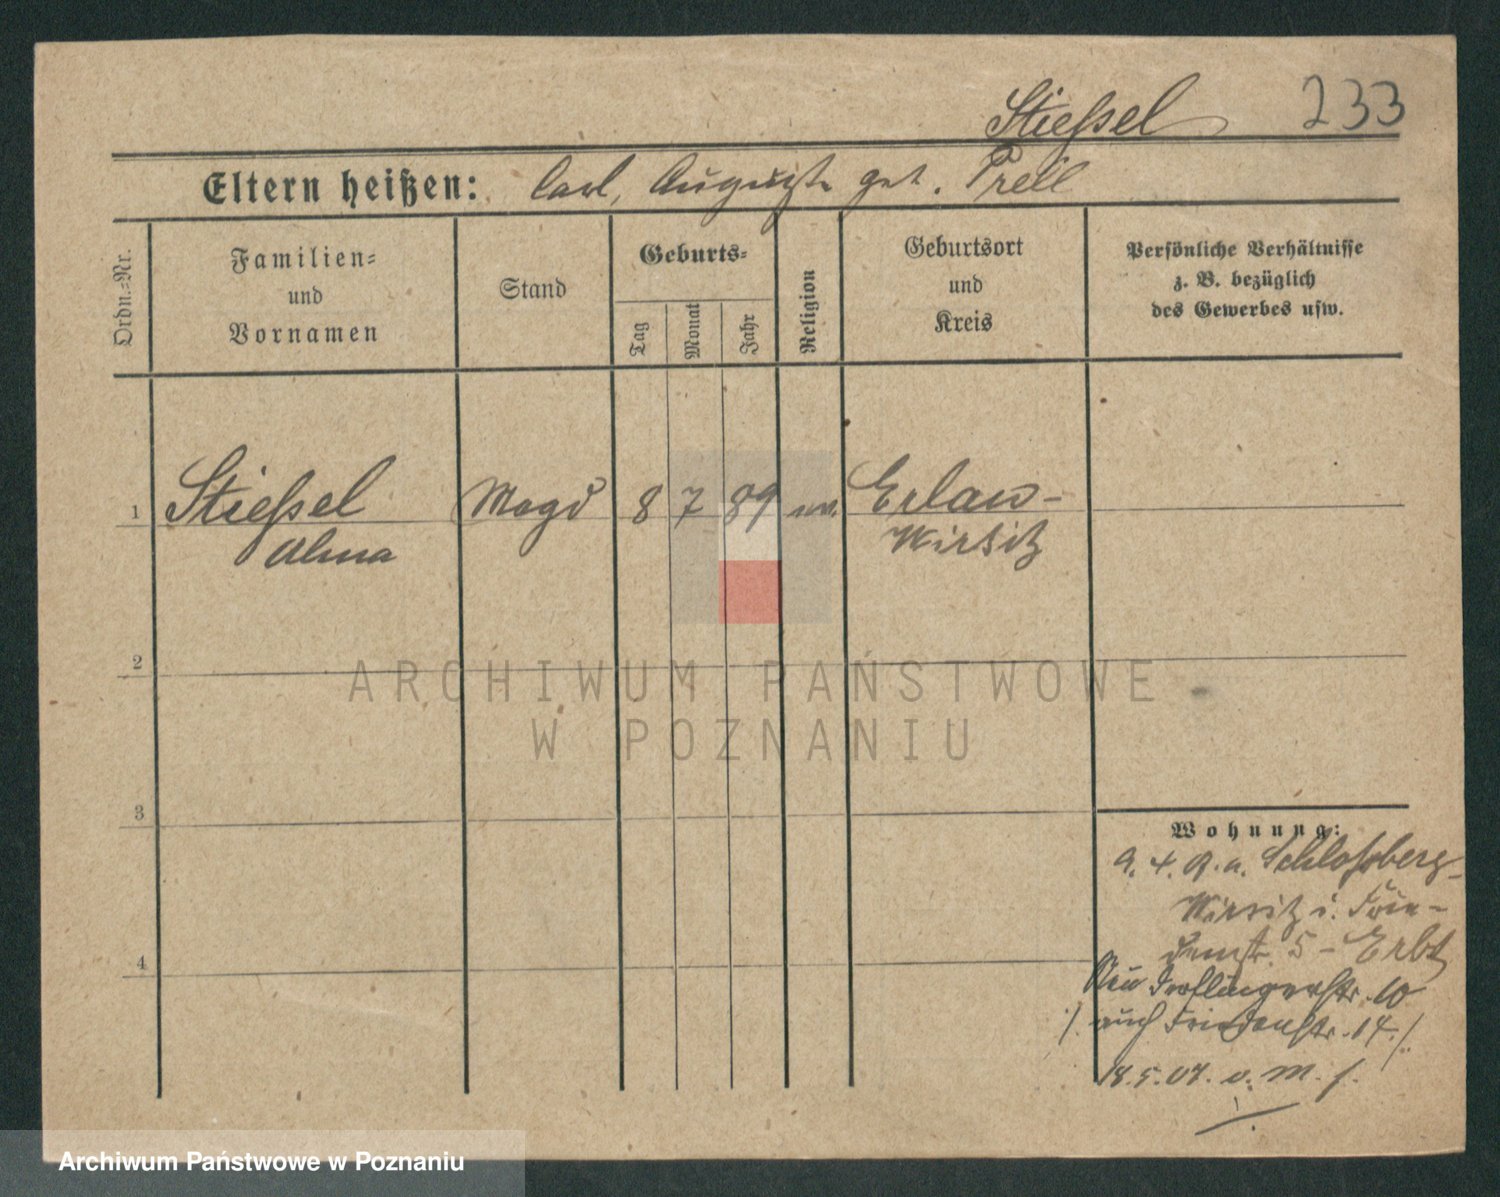 Stießel 233
Eltern heißen: Carl, Auguste geb. Prell
Ordn.=Nr.
Familien=
und
Vornamen
Stand
Geburts=
Tag
Monat
Jahr
Religion
Geburtsort
und
Kreis
Persönliche Verhältnisse
z. B. bezüglich
des Gewerbes usw.
1 Stießel Magd 8 7 89 ev. Erlau-
Alma Wirsitz
2
ARCHIWUM PAŃSTWOWE
W POZNANIU
3
Wohnung:
9. 4. Schloßberg-
Wirsitz i. Frie-
denstr. 5 - Erbt
Neu Derflingerstr. 10
/. auch Friedenstr. 14 /.
4
18.5.07. v. M. f.
Archiwum Państwowe w Poznaniu